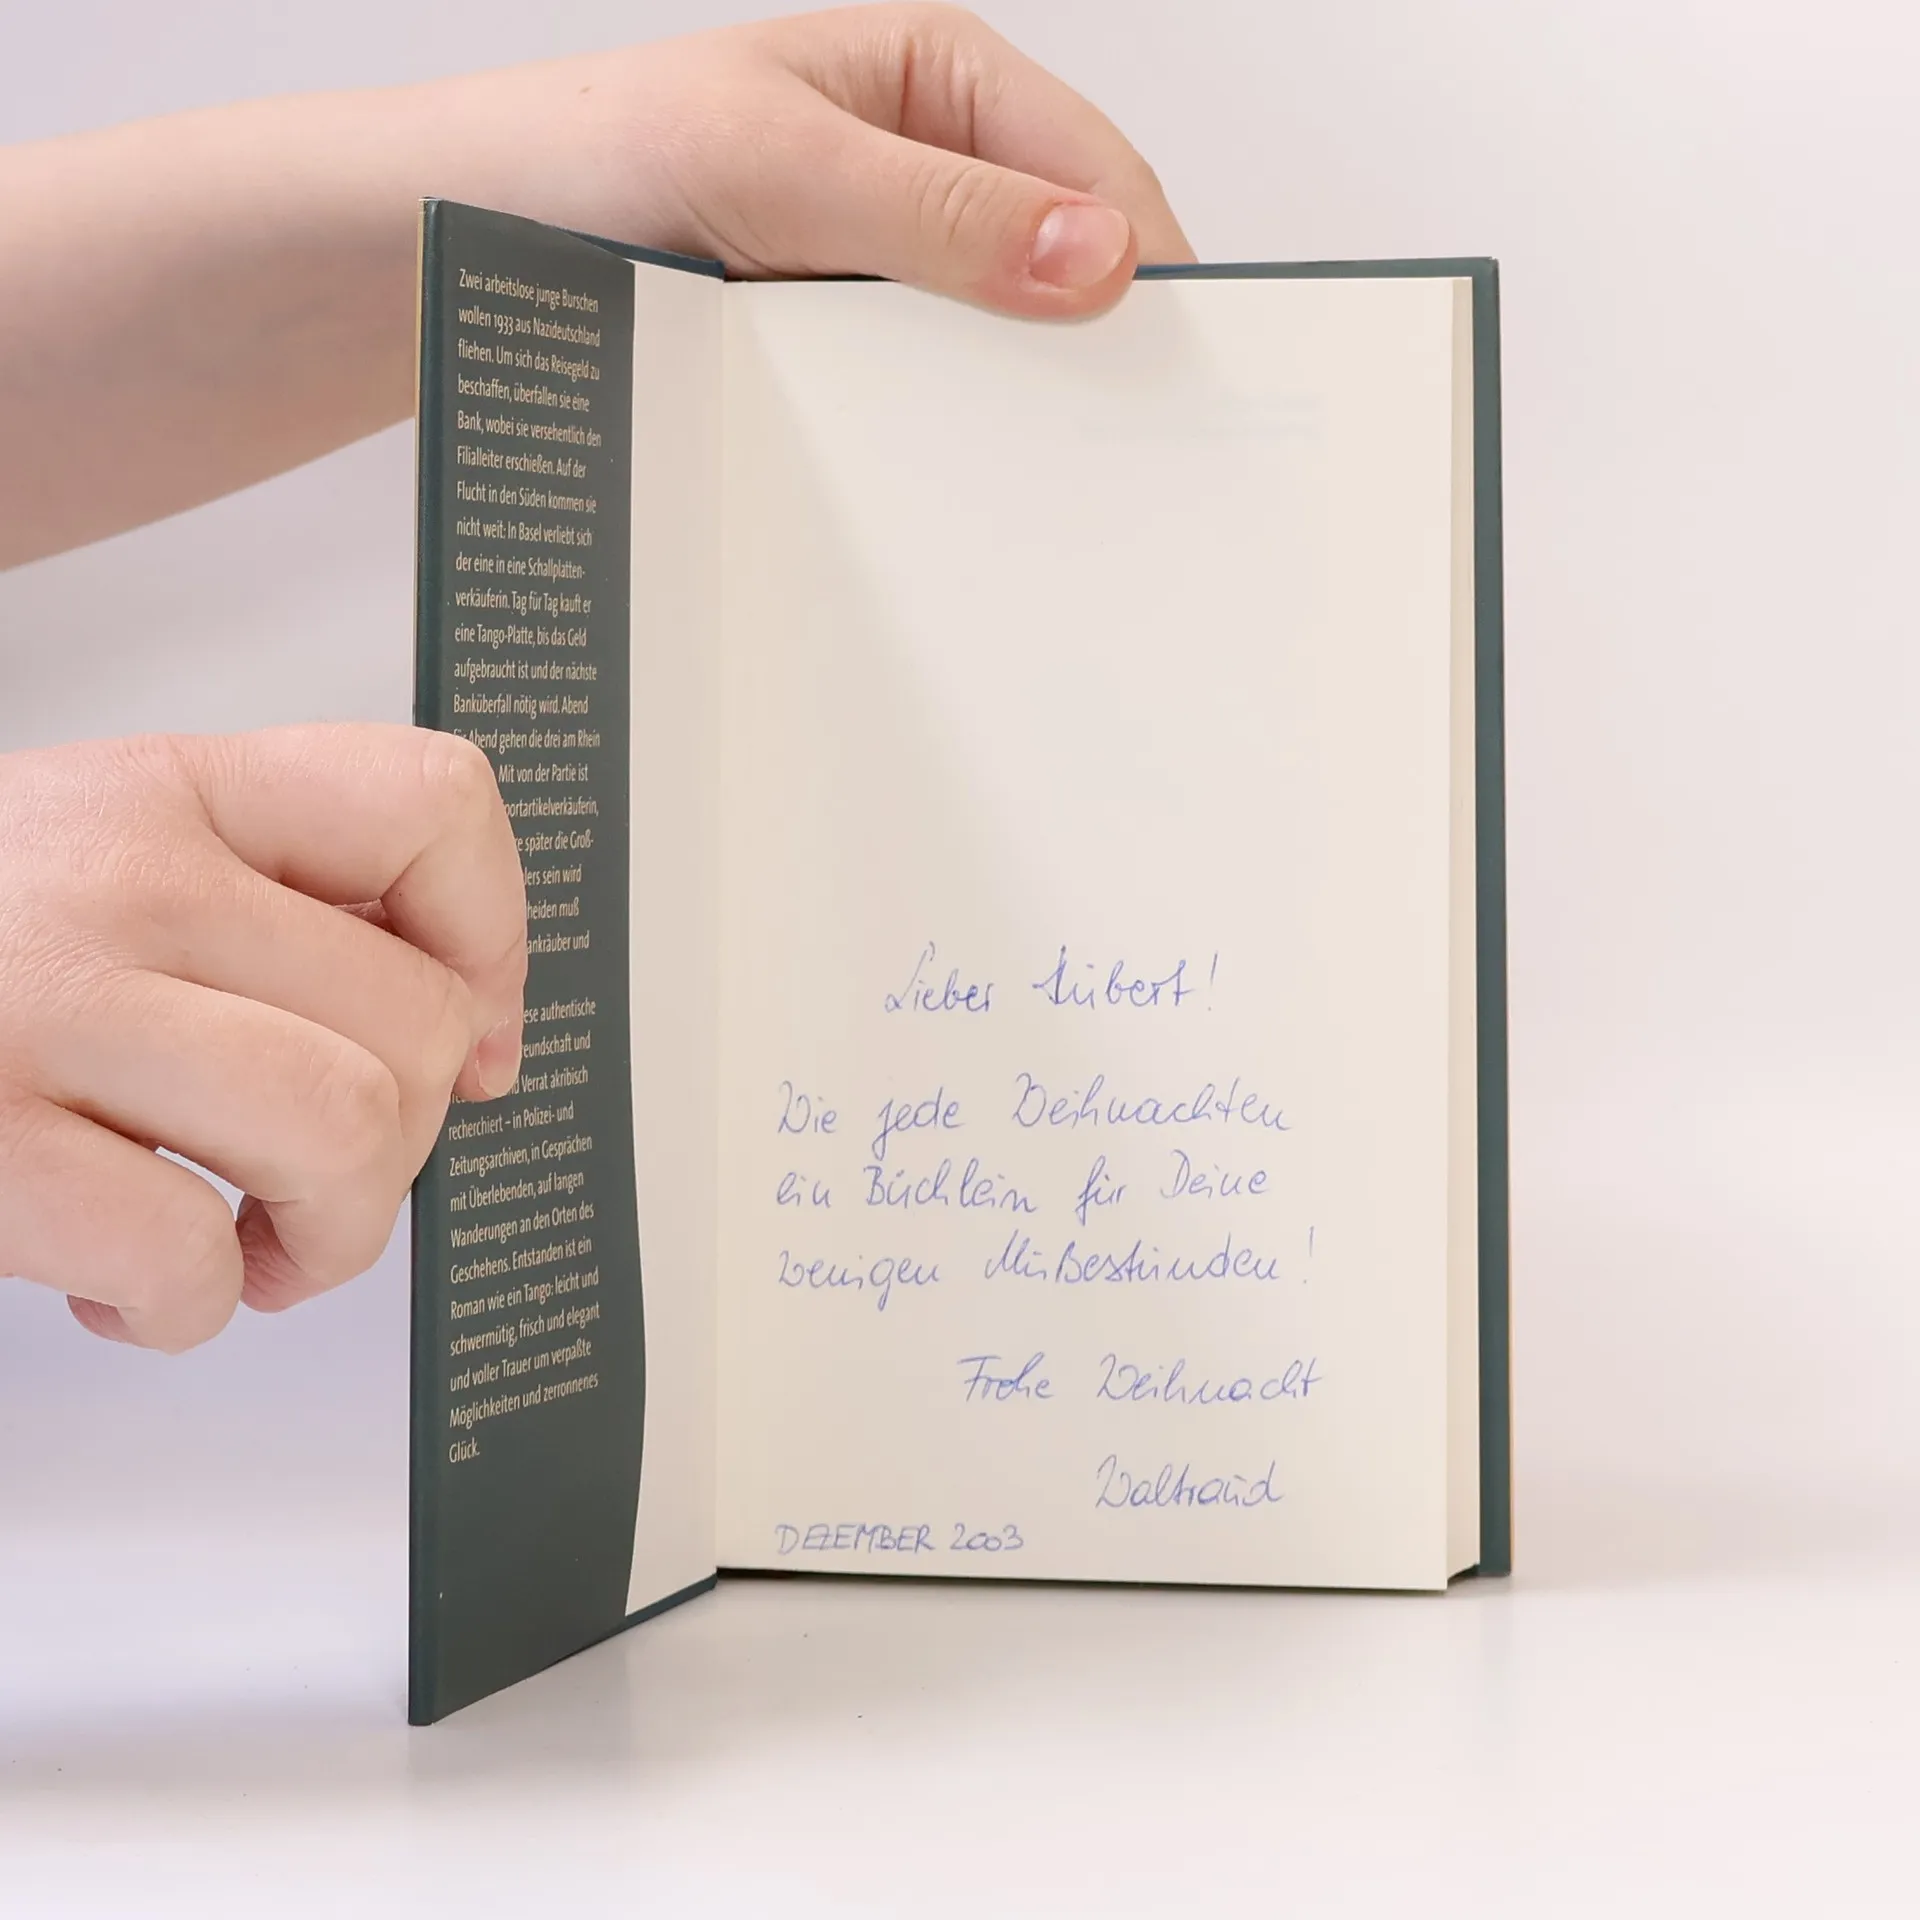 Zwei arbeitslose junge Burschen
wollen 1933 aus Nazideutschland
fliehen. Um sich das Reisegeld zu
beschaffen, überfallen sie eine
Bank, wobei sie versehentlich den
Filialleiter erschießen. Auf der
Flucht in den Süden kommen sie
nicht weit: In Basel verliebt sich
der eine in eine Schallplatten-
verkäuferin. Tag für Tag kauft er
eine Tango-Platte, bis das Geld
aufgebraucht ist und der nächste
Banküberfall nötig wird. Abend
für Abend gehen die drei am Rhein
Mit von der Partie ist
portartikelverkäuferin,
später die Groß-
sein wird
muß
ankräuber und
authentische
und
Verrat akribisch
recherchiert – in Polizei- und
Zeitungsarchiven, in Gesprächen
mit Überlebenden, auf langen
Wanderungen an den Orten des
Geschehens. Entstanden ist ein
Roman wie ein Tango: leicht und
schwermütig, frisch und elegant
und voller Trauer um verpaßte
Möglichkeiten und zerronnenes
Glück.
Lieber Hubert!
Wie jede Weihnachten
ein Büchlein für Deine
wenigen Mußestunden!
Frohe Weihnacht
Waltraud
DEZEMBER 2003